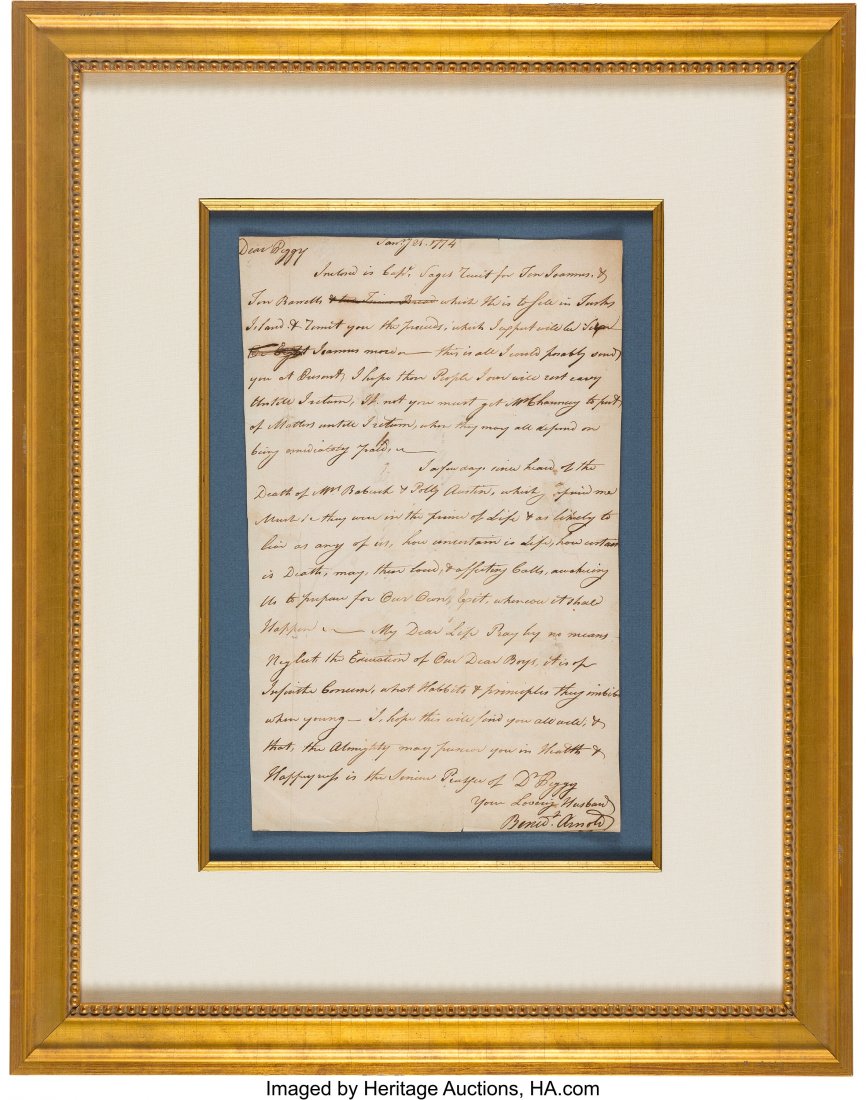 Jany 21. 1774
Dear Peggy
Inclosed is Capt. Sages for Ten Joannes, &
Ten Barrells which He is to sell in Turks
Island & remit you the proceeds, which I suppose will be
Joannes more — this is all I could posably send
you at Present, I hope those People I owe will rest easy
Untill I return, If not you must get Mr Chauncey to put
of Matters untill I return, when they may all depend on
being emediately paid, —
I a few days since heard of the
Death of Mrs Babcock & Polly Austin, which greived me
Much, they were in the prime of Life & as likely to
live as any of us, how uncertain is Life, how certain
is Death, may, their loud, & affecting Calls, awakening
Us to prepare for Our Own Exit, whenever it shall
Happen — My Dear Life Pray by no means
Neglect the Education of Our Dear Boys, it is of
Infinite Concern, what Habbits & principles they imbibe
when young — I, hope this will find you all well, &
that, the Almighty may preserve you in Health &
Happyness is the Sincere Prayer of Dr Peggy
Your Loving Husband
Benedt. Arnold
Imaged by Heritage Auctions, HA.com